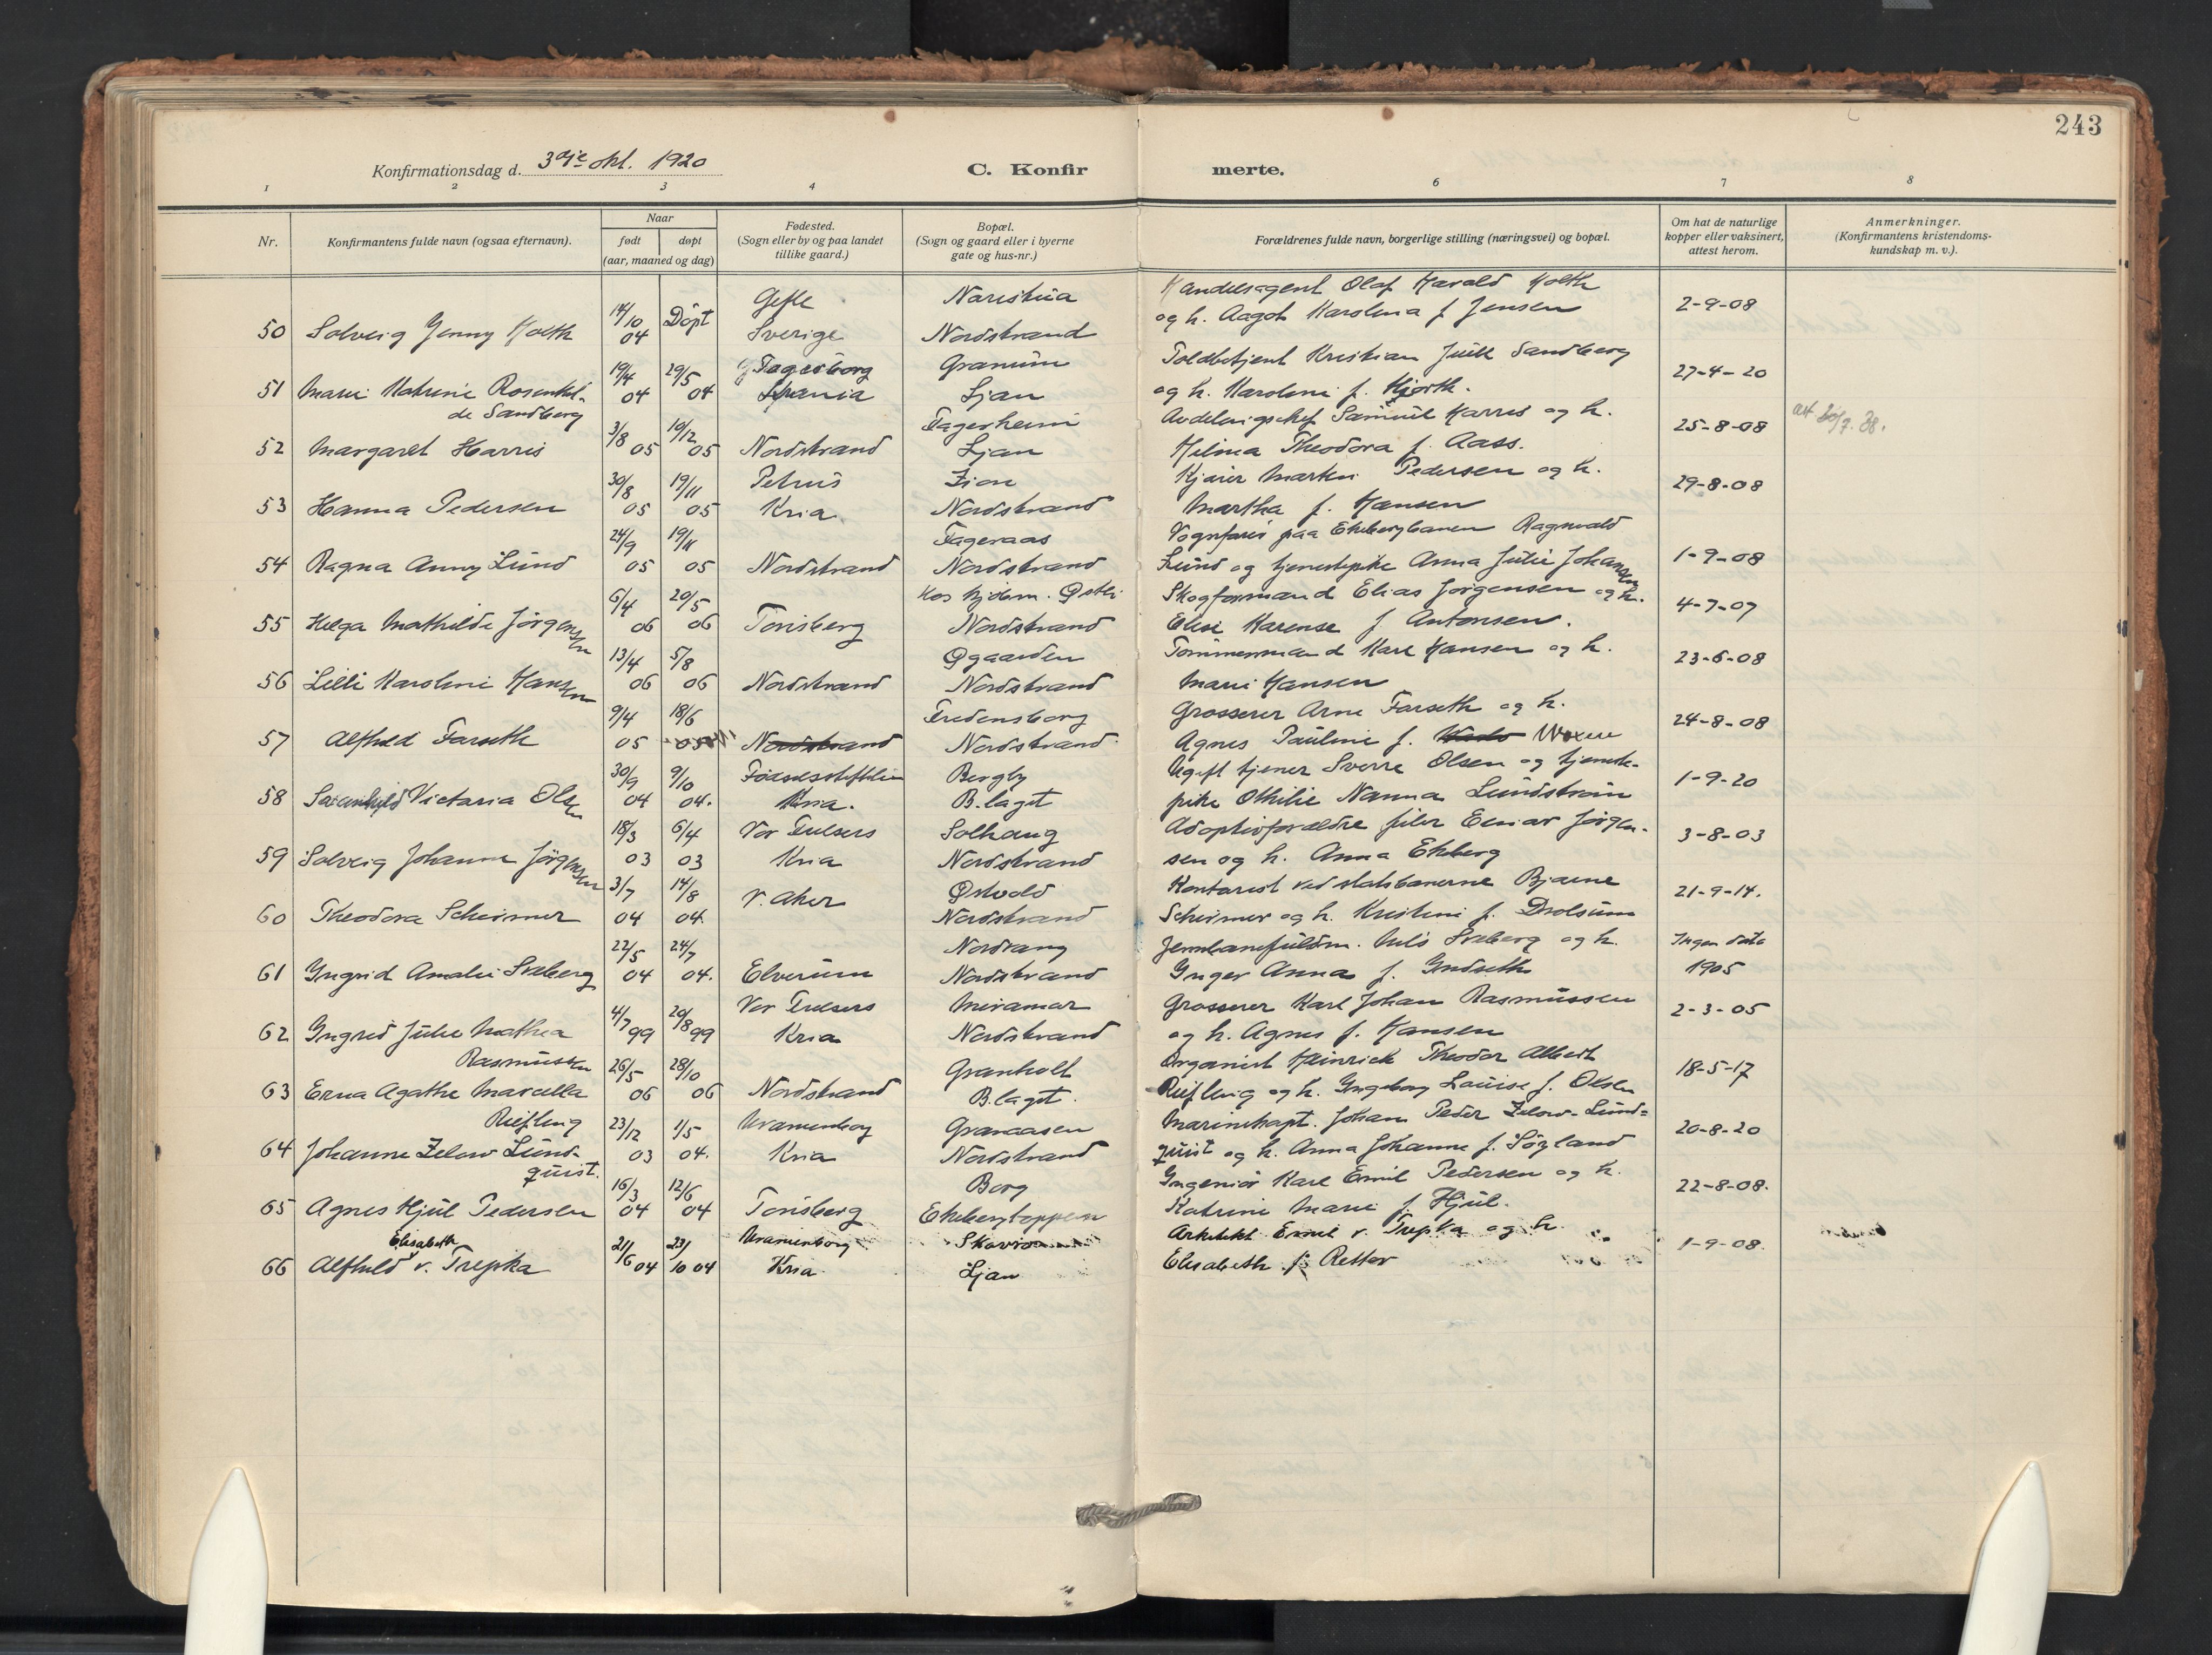 243
Konfirmationsdag d. 3dje okt. 1920
C. Konfir merte.
1 2 3 4 6 7 8
Nr.
Konfirmantens fulde navn (ogsaa efternavn).
Naar
født døpt
(aar, maaned og dag)
Fødested.
(Sogn eller by og paa landet
tillike gaard.)
Bopæl.
(Sogn og gaard eller i byerne
gate og hus-nr.)
Forældrenes fulde navn, borgerlige stilling (næringsvei) og bopæl.
Om hat de naturlige
kopper eller vaksinert,
attest herom.
Anmerkninger.
(Konfirmantens kristendoms-
kundskap m. v.).
14/10 Døpt Gefle Narestua Handelsagent Olaf Harald Holth 2-9-08
50 Solveig Jenny Holth 04 Sverige Nordstrand og h. Aagot Karolina f Jensen
19/4 29/5 Fagerborg Granum Toldbetjent Kristian Juell Sandberg 27-4-20
51 Marie Katrine Rosenkil- 04 04 Ljan og h. Karoline f. Hjorth.
de Sandberg
3/8 10/12 Fagerheim Avdelingschef Samuel Harris og h. 25-8-08
52 Margaret Harris 05 05 Nordstrand Ljan Helma Theodora f. Aass.
30/8 19/11 Petrus Zion Kjører Martin Pedersen og h. 29-8-08
53 Hanna Pedersen 05 05 Kria Nordstrand Martha f. Hansen
24/9 19/11 Fageraas Vognfører paa Ekebergbanen Ragnvald
54 Ragna Anny Lund 05 05 Nordstrand Nordstrand Lund og tjenestepike Anna Julie Johansen 1-9-08
6/4 20/5 Skogformand Elias Jørgensen og h. 4-7-07
55 Helga Mathilde Jørgensen 06 06 Tønsberg Nordstrand Elise Karense f Antonsen.
13/4 5/8 Øgaarden Tømmermand Karl Hansen og h. 23-6-08
56 Lilli Karoline Hansen 06 06 Nordstrand Nordstrand Marie Hansen
9/4 18/6 Fredensborg Grosserer Arne Farseth og h. 24-8-08
57 Alfhild Farseth 05 05 Nordstrand Nordstrand Agnes Pauline f. Woxen
30/9 9/10 Fødselsstiftelsen Bergby Ugift tjener Sverre Olsen og tjeneste- 1-9-20
58 Victoria Olsen 04 04. Kria. B.laget pike Othilie Nanna Lundstrøm
18/3 6/4 Vor Frelsers Solhaug Adoptivforældre filer Einar Jørgen- 3-8-03
59 Solveig Johanne Jørgensen 03 03 Kria Nordstrand sen og h. Anna Ekeberg
3/7 14/8 V. Aker Østvold Kontorist ved statsbanerne Bjarne 21-9-14.
60 Theodora Scheimer 04 04. Nordstrand Scheimer og h. Kristine f. Drolsum
22/5 24/7 Nordvang Jernbanefuldm. Nils Sveberg og h. Ingen data
61 Yngrid Amalie Sveberg 04 04. Elverum Nordstrand Ynger Anna f. Yndseth 1905
4/7 20/8 Vor Frelsers Miramar Grosserer Karl Johan Rasmussen 2-3-05
62 Yngrid Julie Mathea 99 99 Kria Nordstrand og h. Agnes f. Hansen
Rasmussen
26/5 28/10 Granholt Organist Heinrich Theodor Albert 18-5-17
63 Erna Agathe Marcella 06 06 Nordstrand B.laget. Riefling og h. Yngeborg Louise f. Olsen
Riefling
23/12 1/5 Uranienborg Granaasen Marinekapt. Johan Peder Zelow-Lund= 20-8-20
64 Johanne Zelow Lund- 03 04. Kria Nordstrand quist og h. Anna Johanne f. Søyland
quist.
16/3 12/6 Borg Yngeniør Karl Emil Pedersen og h. 22-8-08.
65 Agnes Hjul Pedersen 04 04 Tønsberg Ekebergtoppen Katrine Marie f. Hjul.
Elisabeth 21/6 23/10 Uranienborg Arkitekt Emil v. Trepka og h. 1-9-08.
66 Alfhild v. Trepka 04 04 Kria Ljan Elisabeth f. Retter